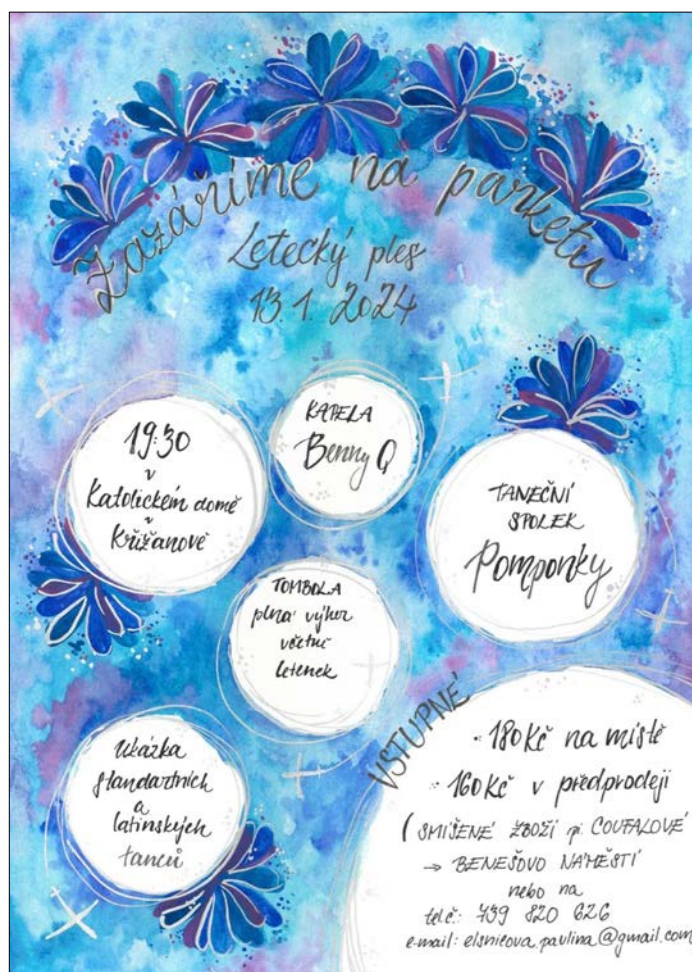 Zazáříme na parketu
Letecký ples
13. 1. 2024
19:30
v
Katolickém domě
v
Křižanově
KAPELA
Benny Q
TANEČNÍ
SPOLEK
Pomponky
TOMBOLA
plná výher
včetně
letenek
Ukázka
standartních
a
latinských
tanců
VSTUPNÉ
180Kč na místě
160Kč v předprodeji
(SMÍŠENÉ ZBOŽÍ pí. COUFALOVÉ
→ BENEŠOVO NÁMĚSTÍ
nebo na
tel.č.: 739 820 626
e-mail: elsnicova.paulina@gmail.com